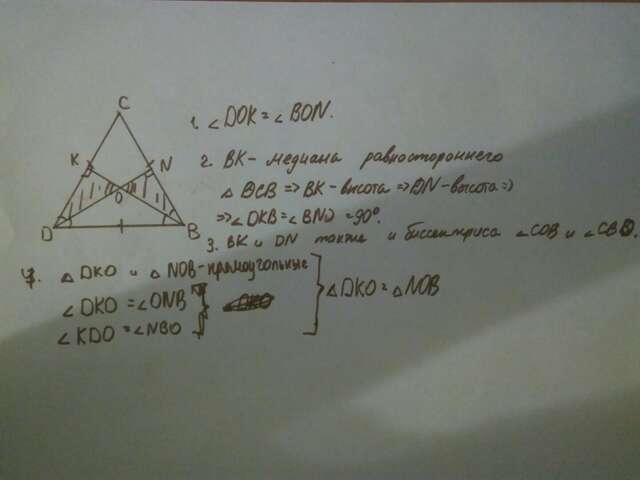 C
K
N
O
D
B
1. ∠DOK = ∠BON.
2. BK - медиана равностороннего
△ BCB => BK - высота => DN - высота =>
=> ∠DKB = ∠BND = 90°.
3. BK и DN также и биссектриса ∠CDB и ∠CBD.
4. △DKO и △NOB - прямоугольные
∠DKO = ∠ONB
∠KDO = ∠NBO
△DKO = △NOB